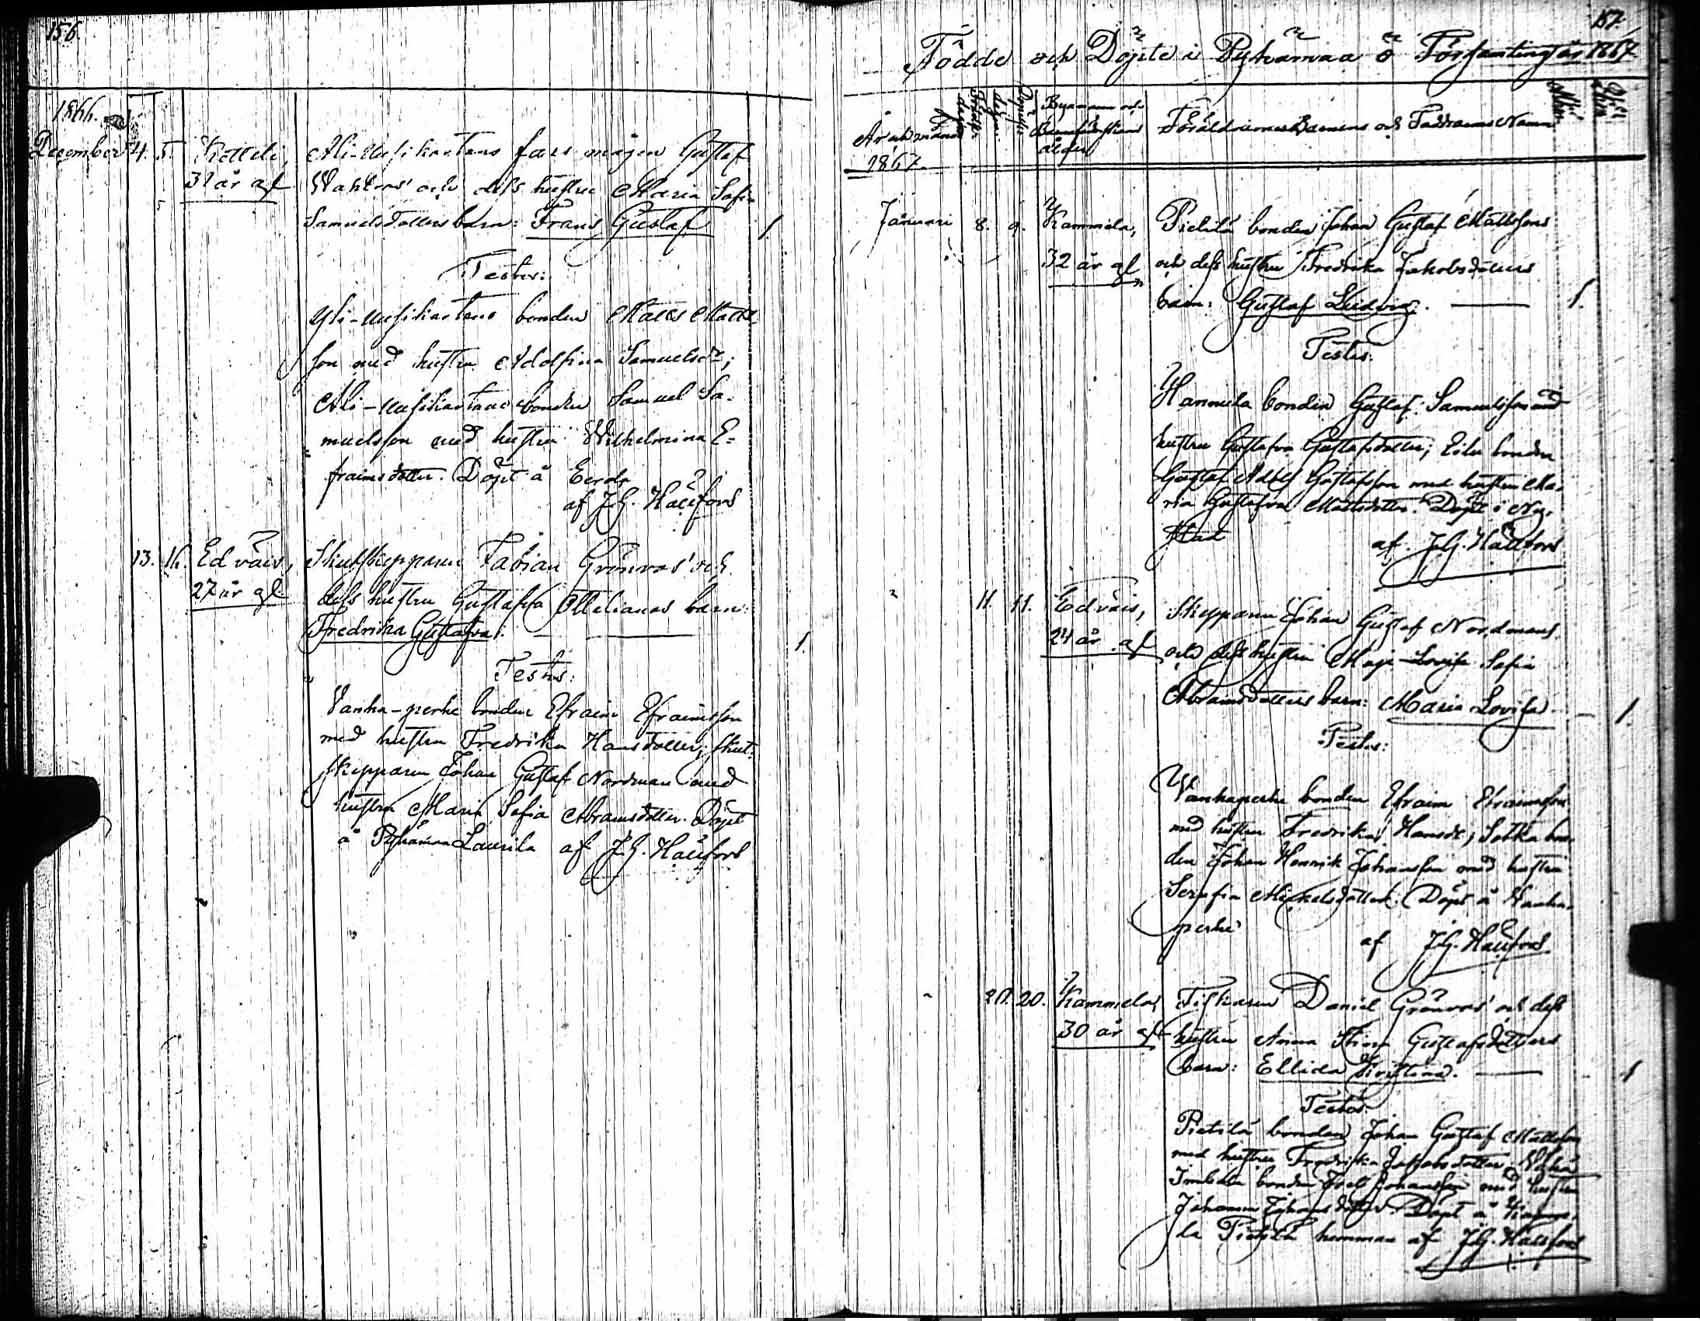 156.
1866.
December 4. 5. Ketteli,
31 år gl
Ali-Uusikartano fars mågen Gustaf
Wahlros' och dess hustru Maria Sofia
Samuelsdotters barn: Frans Gustaf 1.
Testes:
Yli-Uusikartano bonden Matts Matts-
son med hustru Adolfina Samuelsdr;
Ali-Uusikartano bonden Samuel Sa-
muelsson med hustru Wilhelmina E-
fraimsdotter. Döpt å
af J.G. Hallfors
13. 16. Edväis,
27 år gl
Skutskepparen Fabian Grönroos' och
dess hustru Gustafva Ottilianas barn:
Fredrika Gustafva. 1.
Testes:
Vanha-perhe bonden Efraim Efraimsson
med hustru Fredrika Hansdotter; Skut-
skepparen Johan Gustaf Nordman med
hustru Maria Sofia Abramsdotter. Döpt
å Pyhämaa Laurila af J.G. Hallfors
157.
Födde och Döpte i Pyhämaa ö Församling år 1867
År och månad
1867.
Födelse
dagen
Byanamn och
Barnföderskans
ålder
Föräldrarnes Barnens och Faddrarnes Namn
Januari 8. 9. Kammela,
32 år gl
Pietilä bonden Johan Gustaf Mattssons
och dess hustru Fredrika Jakobsdotters
barn: Gustaf Ludvig. 1.
Testes:
Hannula bonden Gustaf Samuelsson med
hustru Gustafva Gustafsdotter; Eilu bonden
Gustaf Adolf Gustafsson med hustru Ma-
ria Gustafva Mattsdotter. Döpt i Ny-
stad
af J.G. Hallfors
11. 11. Edväis,
24 år gl
Skepparen Johan Gustaf Nordmans
och dess hustru Maja-Lovisa Sofia
Abramsdotters barn: Maria Lovisa. 1.
Testes:
Vanhaperhe bonden Efraim Efraimsson
med hustru Fredrika Hansdr; Sotka bon-
den Johan Henrik Johansson med hustru
Serafia Mickelsdotter. Döpt å Vanha-
perhe
af J.G. Hallfors
20. 20. Kammela,
30 år gl
Fiskaren Daniel Grönroos' och dess
hustru Anna Stina Gustafsdotters
barn: Ellida Kristina. 1
Testes:
Pietilä bonden Johan Gustaf Mattsson
med hustru Fredrika Jakobsdotter,
bonden Johansson med hustru
Johanna Johansdotter. Döpt å Kamme-
la Pietilä hemman af J.G. Hallfors